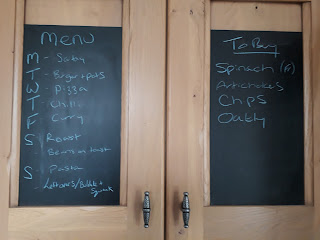 Menu
M - Satay
T - Burger + pots
W - Pizza
T - Chilli
F - Curry
S - Roast
Beans on toast
S - Pasta
- Leftovers/Bubble +
To Buy
Spinach (F)
Artichokes
Chips
Oatly